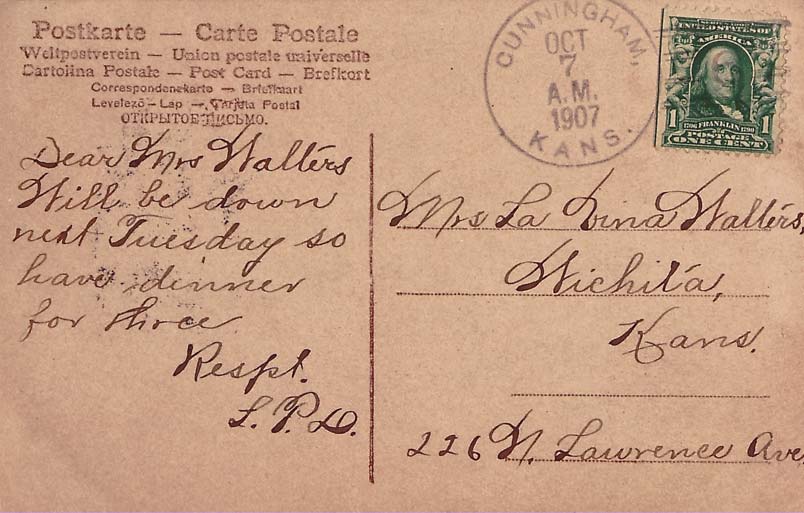 Postkarte — Carte Postale
Weltpostverein — Union postale universelle
Cartolina Postale — Post Card — Brefkort
Correspondenekarte — Briefkaart
Levelező - Lap — Tarjeta Postal
ОТКРЫТОЕ ПИСЬМО.
CUNNINGHAM,
OCT
7
A.M.
1907
KANS.
UNITED STATES OF
AMERICA
1 1
1706 FRANKLIN 1790
POSTAGE
ONE CENT
Dear Mrs Walters
Will be down
next Tuesday so
have dinner
for three
Respt.
L. P. D.
Mrs La Vina Walters,
Wichita,
Kans.
226 N. Lawrence Ave